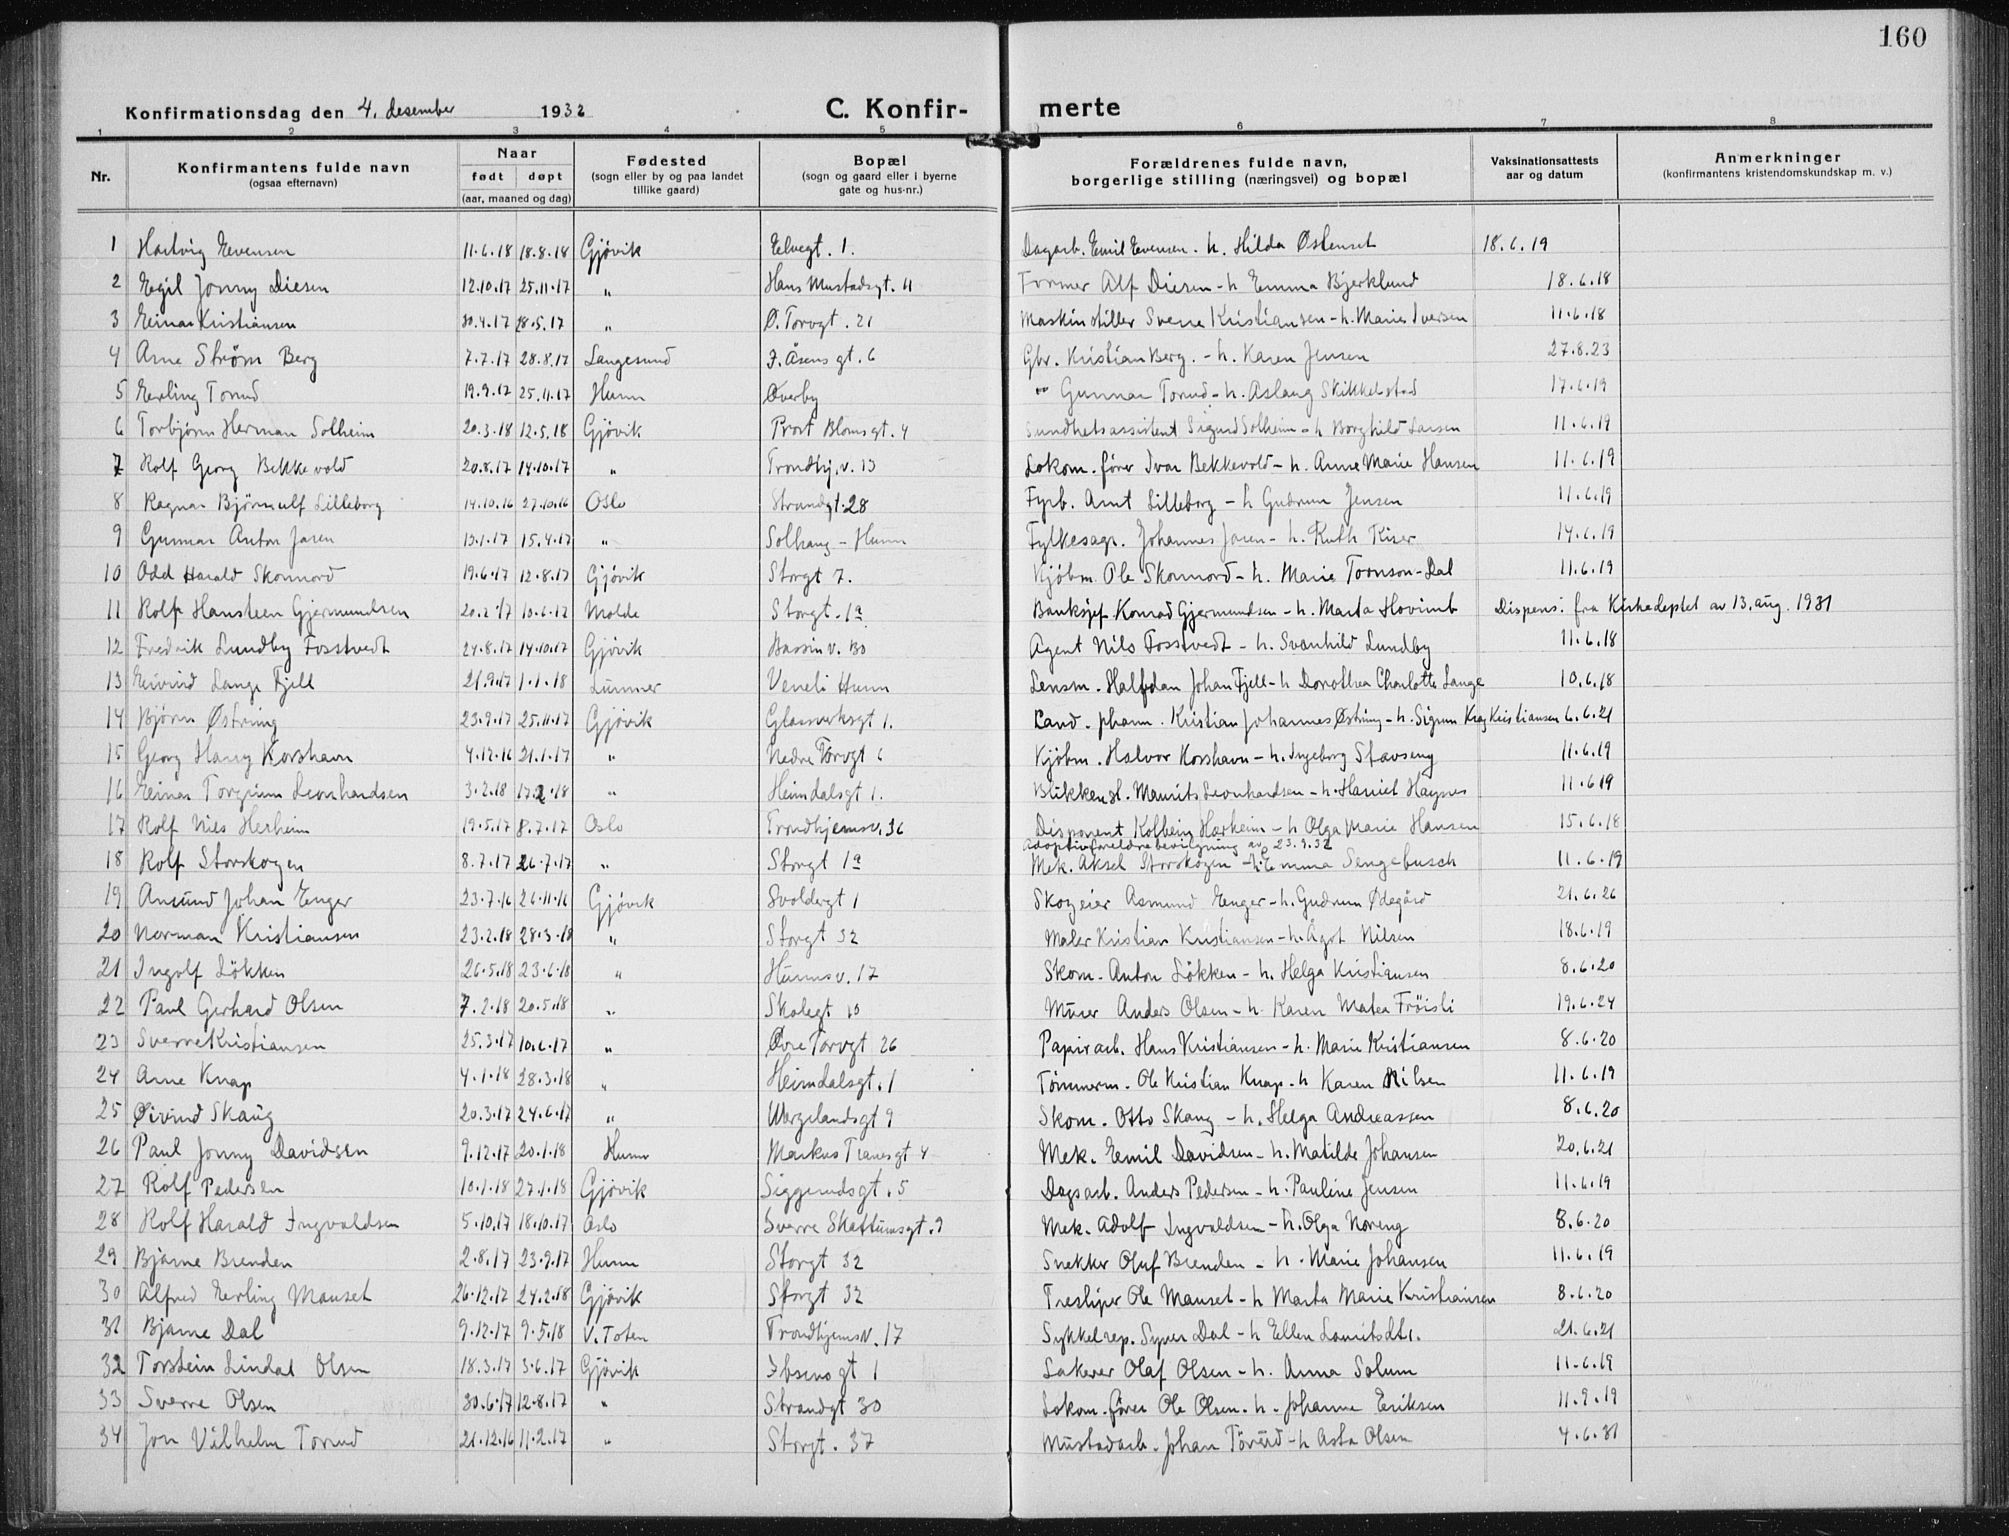 160
Konfirmationsdag den 4. desember 1932 C. Konfir- merte
1 2 3 4 5 6 7 8
Nr. Konfirmantens fulde navn (ogsaa efternavn) Naar født døpt (aar, maaned og dag) Fødested (sogn eller by og paa landet tillike gaard) Bopæl (sogn og gaard eller i byerne gate og hus-nr.) Forældrenes fulde navn, borgerlige stilling (næringsvei) og bopæl Vaksinationsattests aar og datum Anmerkninger (konfirmantens kristendomskundskap m. v.)
1 Hartvig Evensen 11.6.18 18.8.18 Gjøvik Elvegt. 1. Dagarb. Emil Evensen. h. Hilda Østenset 18.6.19
2 Egil Jonny Diesen 12.10.17 25.11.17 " Hans Mustadsgt. 11 Former Alf Diesen - h Emma Bjerklund 18.6.18
3 Einar Kristiansen 30.4.17 28.5.17 " Ø. Torvgt. 21 Maskinstiller Sverre Kristiansen - h. Marie Iversen 11.6.18
4 Arne Strøm Berg 7.7.17 28.8.17 Langesund I. Åsens gt. 6 Gbr. Kristian Berg. - h. Karen Jensen 27.8.23
5 Erling Torud 19.9.17 25.11.17 Hunn Øverby " Gunnar Torud - h. Aslaug Skikkelstad 17.6.19
6 Torbjørn Herman Solheim 20.3.18 12.5.18 Gjøvik Prost Blomsgt. 4 Sundhetsassistent Sigurd Solheim - h Borghild Larsen 11.6.19
7 Rolf Georg Bekkevold 20.8.17 14.10.17 " Trondhj.v. 13 Lokom. fører Ivar Bekkevold - h. Anne Marie Hansen 11.6.19
8 Ragnar Bjørnulf Lilleborg 14.10.16 27.10.16 Oslo Strandgt. 28 Fyrb. Arnt Lilleborg - h Gudrun Jensen 11.6.19
9 Gunnar Anton Jaren 13.1.17 15.4.17 " Solhaug - Hunn Fylkesagr. Johannes Jaren - h. Ruth Kiser 14.6.19
10 Odd Harald Skonnord 19.6.17 12.8.17 Gjøvik Storgt 7. Kjöbm. Ole Skonnord - h. Marie Tornson-Dal 11.6.19
11 Rolf Hansteen Gjermundsen 20.2.17 10.6.17 Molde Storgt. 1a Banksjef Konrad Gjermundsen - h. Marta Hovind Dispens. fra Kirkedeptet av 13. aug. 1931
12 Fredrik Lundby Fosstvedt 24.8.17 14.10.17 Gjøvik Bassin v. 30 Agent Nils Fosstvedt - h. Svanhild Lundby 11.6.18
13 Eivind Lange Fjell 21.9.17 1.1.18 Lunner Veneli Hunn Lensm. Halfdan Johan Fjell - h Dorothea Charlotte Lange 10.6.18
14 Bjørn Østring 23.9.17 25.11.17 Gjøvik Glassverksgt 1. Cand. pharm. Kristian Johannes Østring - h. Sigrun Krag Kristiansen 6.6.21
15 Georg Harry Korshavn 4.12.16 21.1.17 " Nedre Torvgt 6 Kjöbm. Halvor Korshavn - h. Ingeborg Stavseng 11.6.19
16 Einar Torgrim Leonhardsen 3.2.18 17.2.18 " Heimdalsgt 1. Blikkensl. Maurits Leonhardsen - h. Harriet Haynes 11.6.19
17 Rolf Nils Herheim 19.5.17 8.7.17 Oslo Trondhjemsv. 36 Disponent Kolbein Herheim - h Olga Marie Hansen 15.6.18
adoptivforeldrebevilgning av 23.9.32
18 Rolf Storskogen 8.7.17 26.7.17 " Storgt 1a Mek. Aksel Storskogen - h. Emma Sengebusch 11.6.19
19 Amund Johan Enger 23.7.16 26.11.16 Gjøvik Svoldergt 1 Skogeier Asmund Enger - h. Gudrun Ødegård 21.6.26
20 Norman Kristiansen 23.2.18 28.3.18 " Storgt 32 Maler Kristian Kristiansen - h. Ågot Nilsen 18.6.19
21 Ingolf Lökken 26.5.18 23.6.18 " Hunnsv. 17 Skom. Anton Lökken - h. Helga Kristiansen 8.6.20
22 Paul Gerhard Olsen 7.2.18 20.5.18 " Skolegt 10 Murer Anders Olsen - h. Karen Matea Fröisli 19.6.24
23 Sverre Kristiansen 25.3.17 10.6.17 " Øvre Torvgt 26 Papirarb. Hans Kristiansen - h. Marie Kristiansen 8.6.20
24 Arne Knap 4.1.18 28.3.18 " Heimdalsgt. 1 Tömmerm. Ole Kristian Knap - h Karen Nilsen 11.6.19
25 Øivind Skaug 20.3.17 24.6.17 " Wergelandsgt 9 Skom. Otto Skaug - h. Helga Andreassen 8.6.20
26 Paul Jonny Davidsen 9.12.17 20.1.18 Hunn Markus Tranesgt 4 Mek. Emil Davidsen - h. Matilde Johansen 20.6.21
27 Rolf Pedersen 10.1.18 27.1.18 Gjøvik Siggerudsgt. 5 Dagsarb. Anders Pedersen - h. Pauline Jensen 11.6.19
28 Rolf Harald Ingvaldsen 5.10.17 18.10.17 Oslo Sverre Skattumsgt. 9 Mek. Adolf Ingvaldsen - h. Olga Noreng 8.6.20
29 Bjarne Brenden 2.8.17 23.9.17 Hunn Storgt 32 Snekker Oluf Brenden - h. Marie Johansen 11.6.19
30 Alfred Erling Manset 26.12.17 24.2.18 Gjøvik Storgt 32 Tresliper Ole Manset - h Marta Marie Kristiansen 8.6.20
31 Bjarne Dal 9.12.17 9.5.18 V. Toten Trondhjemsv. 17 Sykkelrep. Syver Dal - h Ellen 21.6.21
32 Torstein Lindal Olsen 18.3.17 3.6.17 Gjøvik Ibsens gt 1 Lakerer Olaf Olsen - h. Anna Solum 11.6.19
33 Sverre Olsen 30.6.17 12.8.17 " Strandgt 30 Lokom. fører Ole Olsen. h. Johanne Eriksen 11.9.19
34 Jon Vilhelm Torud 21.12.16 11.2.17 " Storgt. 37 Mustadarb. Johan Törud - h Asta Olsen 4.6.31